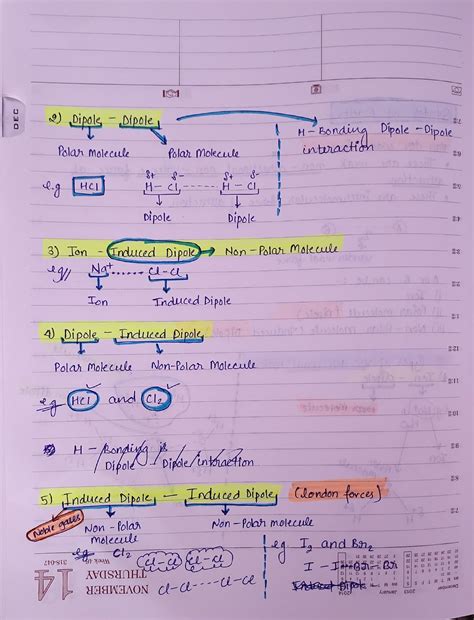 DEC
2) Dipole - Dipole
H-Bonding Dipole-Dipole
interaction
Polar Molecule Polar Molecule
e.g HCl H - Cl ------ H - Cl
δ+ δ- δ+ δ-
Dipole Dipole
3) Ion - Induced Dipole → Non-Polar Molecule
eg Na+ ...... Cl-Cl
Ion Induced Dipole
4) Dipole - Induced Dipole
Polar Molecule Non-Polar Molecule
eg HCl and Cl2
H-Bonding is
Dipole Dipole interaction
5) Induced Dipole - Induced Dipole (london forces)
Noble gases Non-Polar molecule Non-Polar molecule
eg Cl2 Cl-Cl Cl-Cl
Cl-Cl----Cl-Cl
eg I2 and Br2
I - I --- Br - Br
14
NOVEMBER
THURSDAY
Week-47
318-047